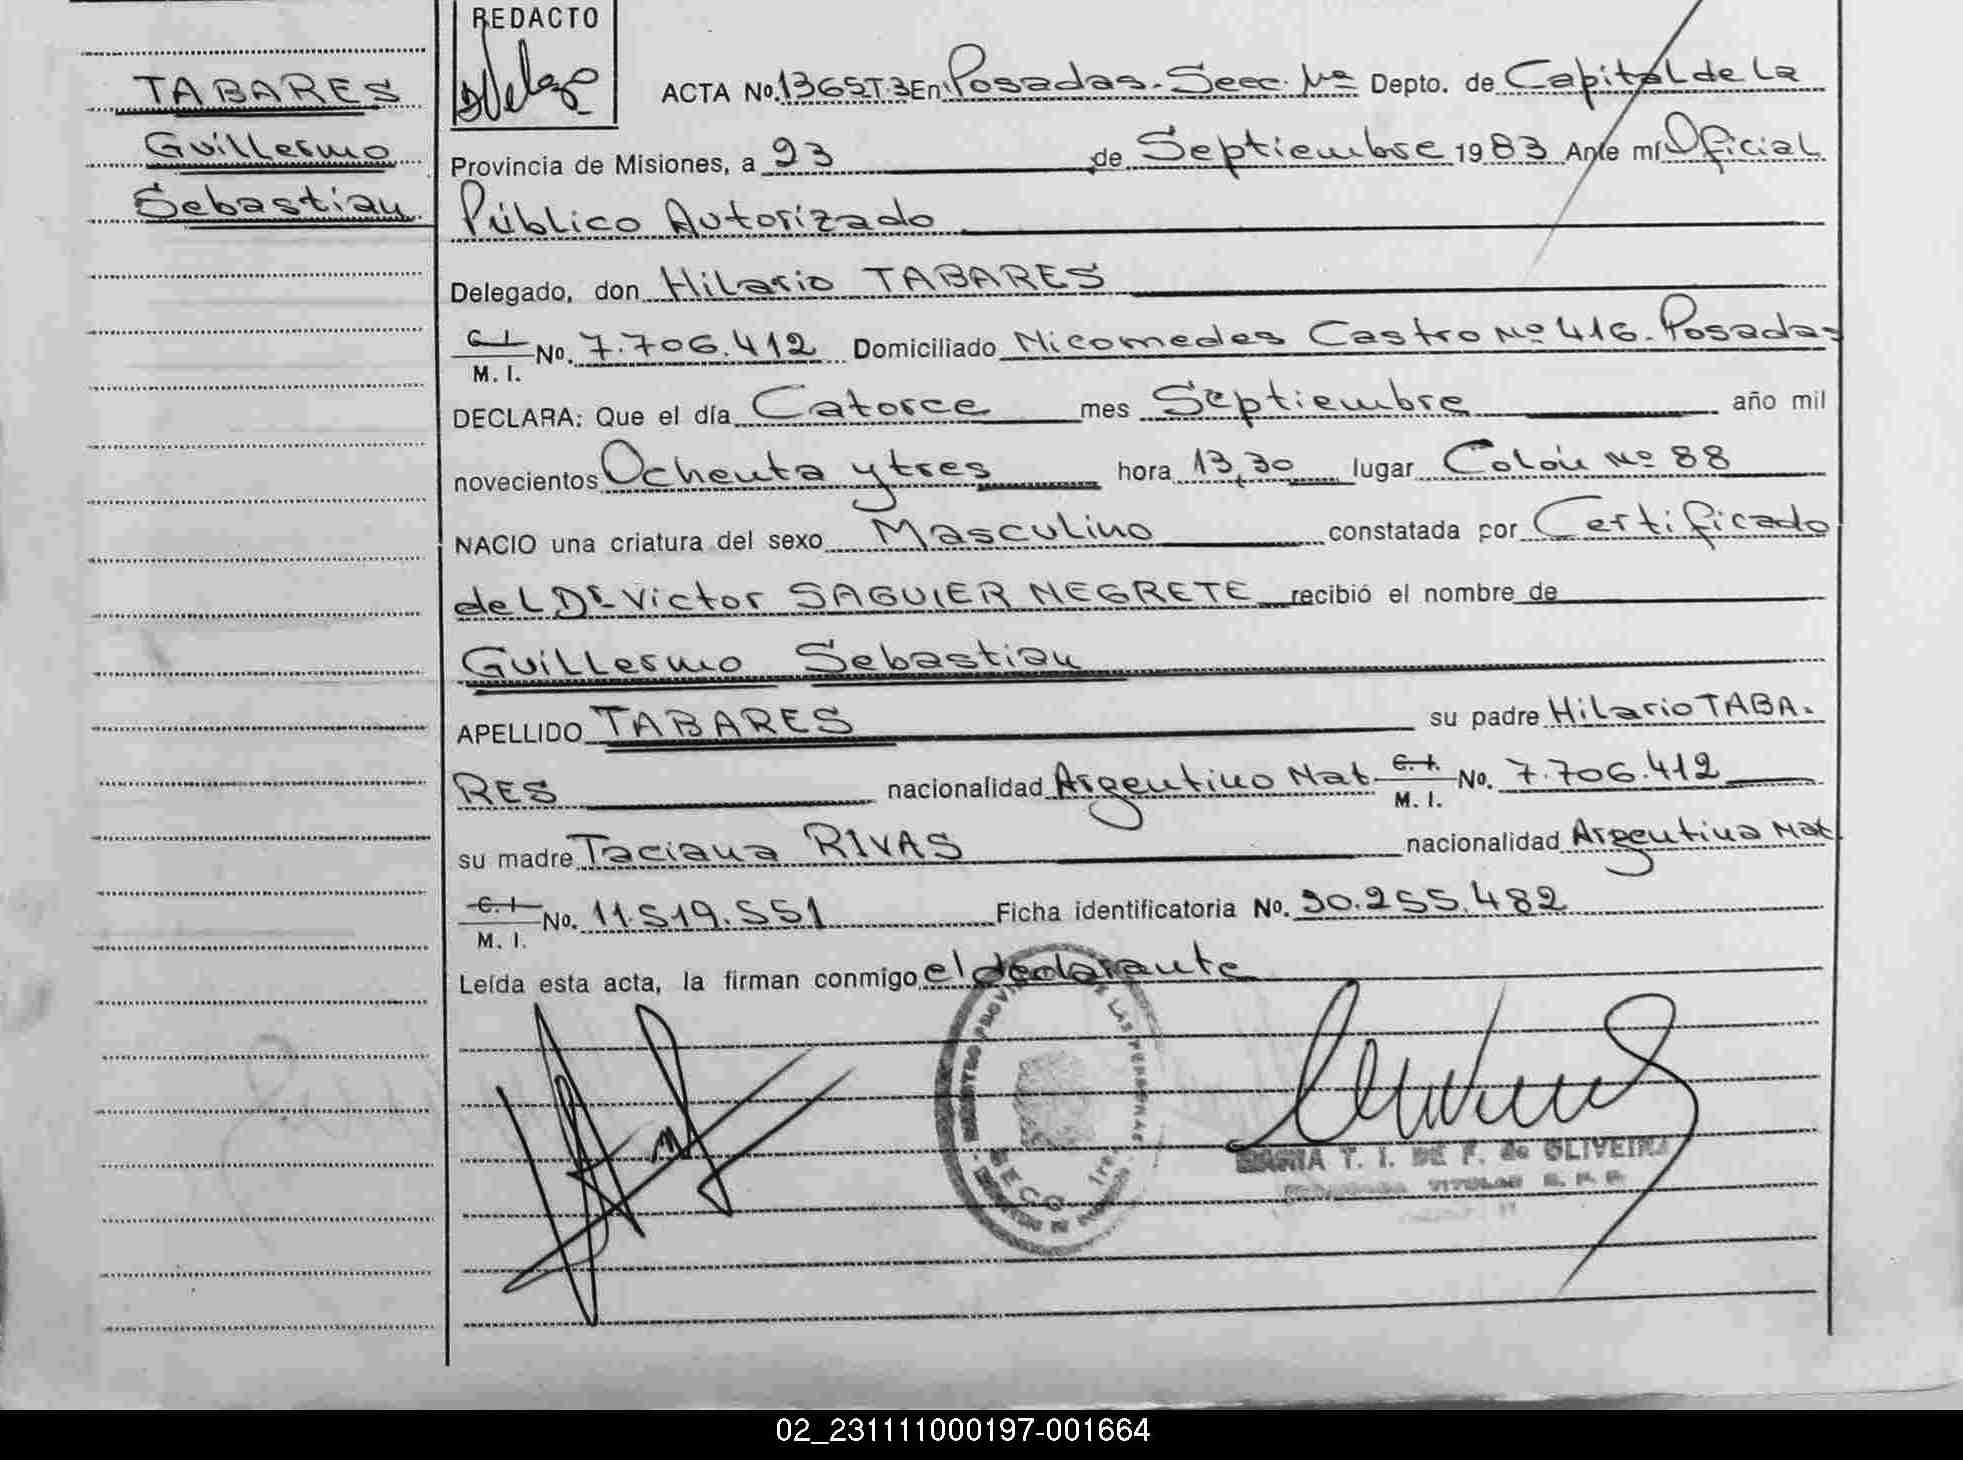 REDACTO
TABARES
Guillermo
Sebastian
ACTA No. 1365T.3 En Posadas. Secc. 1ra Depto. de Capital de La
Provincia de Misiones, a 23 de Septiembre 1983 Ante mí Oficial
Público Autorizado
Delegado, don Hilario TABARES
C. I. M. I. No. 7.706.412 Domiciliado Nicomedes Castro Nº 416. Posadas
DECLARA: Que el día Catorce mes Septiembre año mil
novecientos Ochenta y tres hora 13,30 lugar Colón Nº 88
NACIO una criatura del sexo Masculino constatada por Certificado
del Dr. Victor SAGUIER NEGRETE recibió el nombre de
Guillermo Sebastian
APELLIDO TABARES su padre Hilario TABA.
RES nacionalidad Argentino Nat. C. I. M. I. No. 7.706.412
su madre Taciana RIVAS nacionalidad Argentina Nat
C. I. M. I. No. 11.519.551 Ficha identificatoria No. 30.255.482
Leída esta acta, la firman conmigo el declarante
T. I. DE F. de OLIVEIRA
02_231111000197-001664